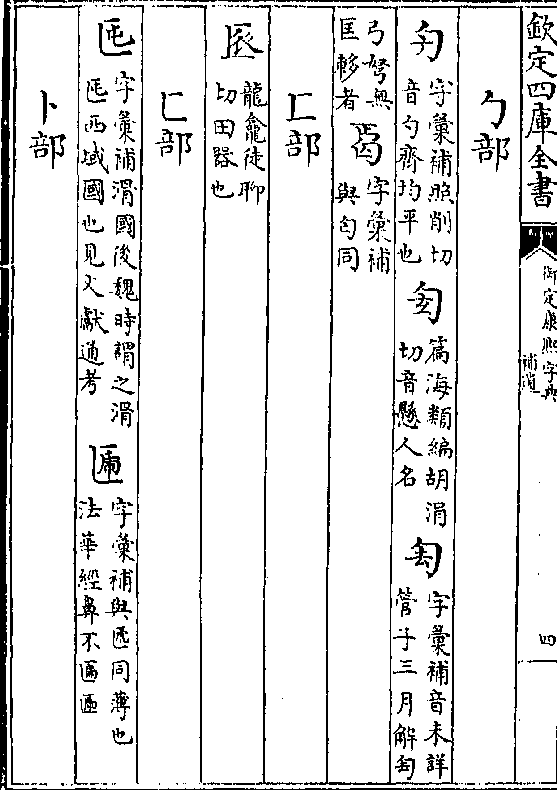 欽定四庫全書
御定康熙字典
補遺
四
勹部
字彙補照削切
音勺齊均平也
篇海類編胡涓
切音懸人名
字彙補音未詳
管子三月解匋
弓弩無
匡軫者
字彙補
與匃同
匚部
龍龕徒聊
切田器也
匸部
字彙補滑國後魏時謂之滑
西域國也見文獻通考
字彙補與匾同薄也
法華經鼻不匾㔸
卜部